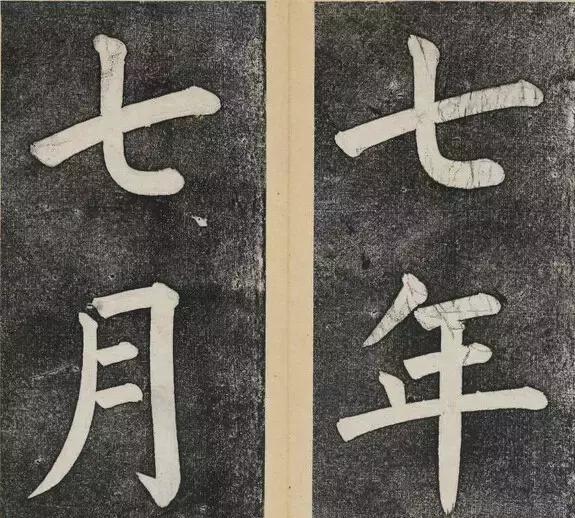 七年
七月